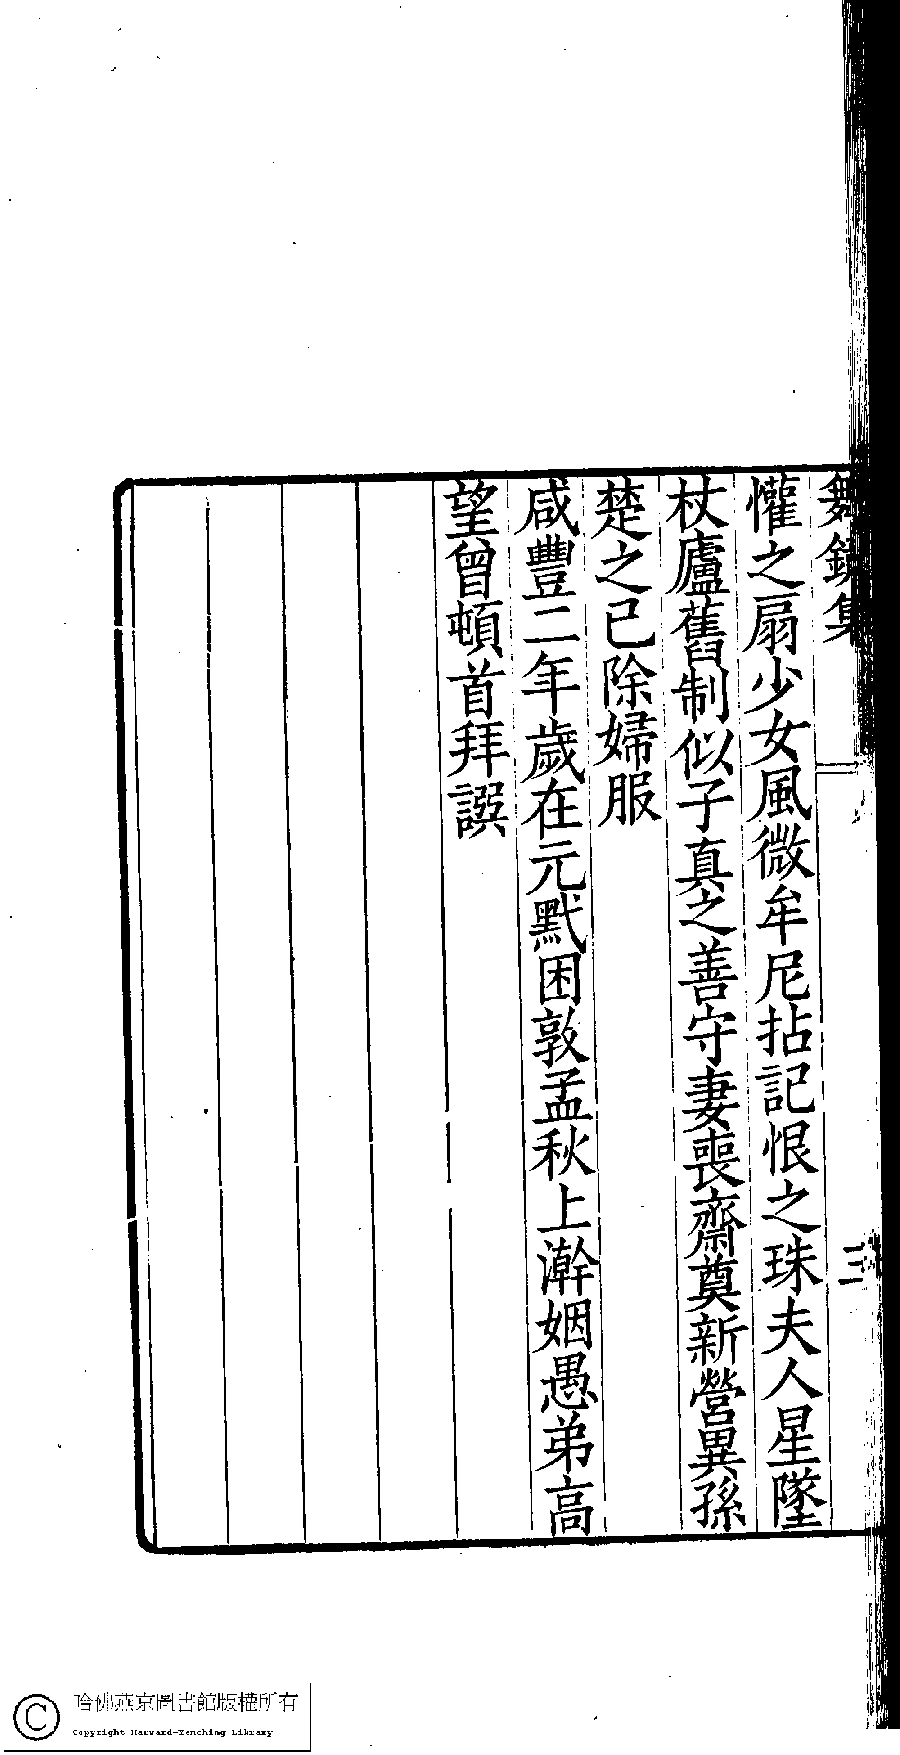 舞鏡集
三
懽之扇少女風微牟尼拈記恨之珠夫人星墜
杖廬舊制似子真之善守妻喪齋奠新營異孫
楚之已除婦服
咸豐二年歲在元黓困敦孟秋上澣姻愚弟高
望曾頓首拜譔
哈佛燕京圖書館版權所有
Copyright Harvard-Yenching Library